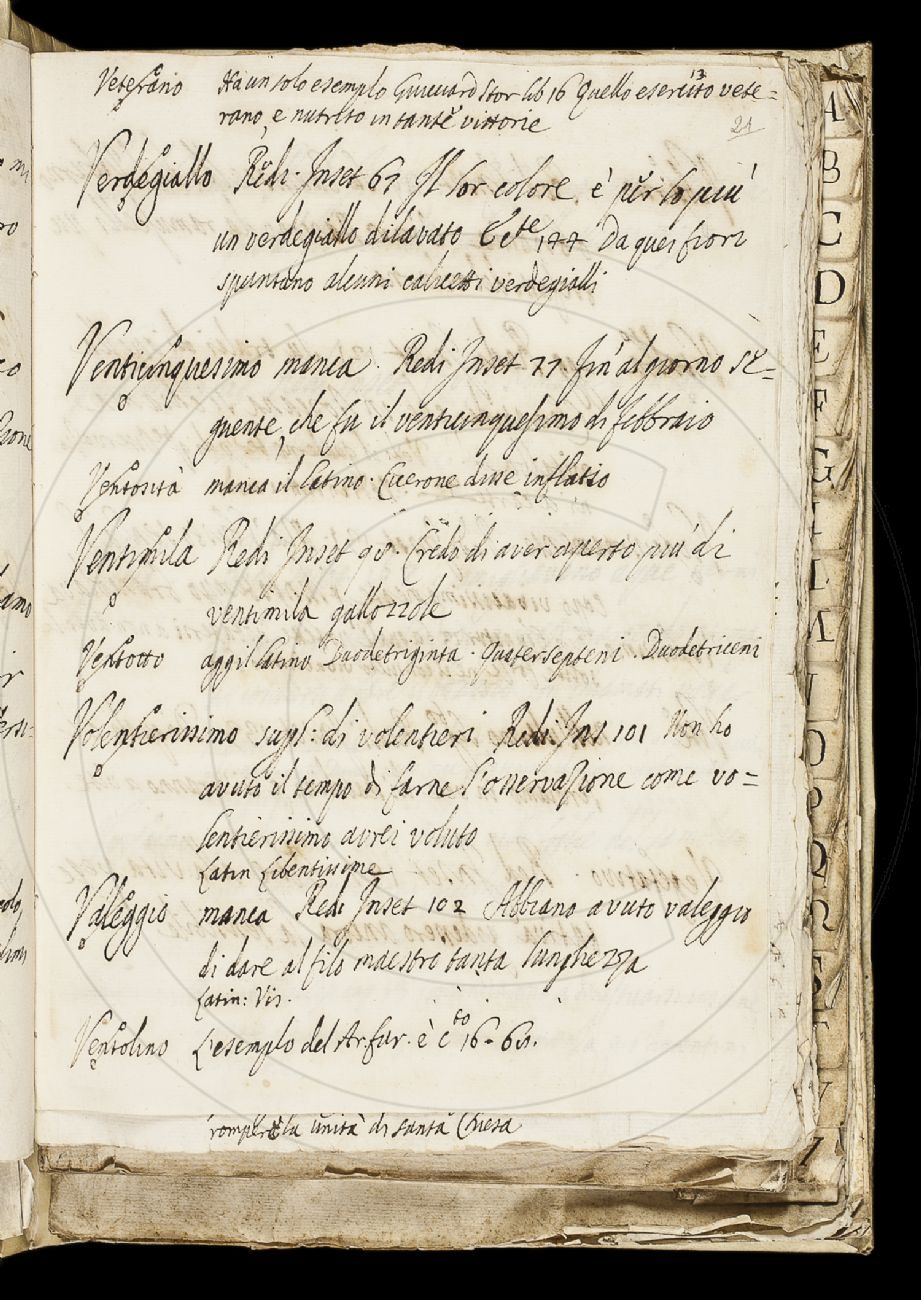 Veterano Ha un solo esemplo Guicciard Stor lib 16 Quello esercito vete=
13
rano, e nutrito in tante vittorie
21
Verdegiallo Redi. Inset 67 Il lor colore è per lo più
un verdegiallo dilavato E 144 Da quei fiori
spuntano alcuni calicetti verdegialli
Venticinquesimo manca. Redi Inset 77. fin' al giorno se=
guente, che fu il venticinquesimo di febbraio
Ventosità manca il latino. Cicerone disse inflatio
Ventimila Redi Inset 98. Credo di aver aperto più di
ventimila gallozzole
Ventotto aggil latino Duodetriginta. Quatersepteni. Duodetriceni
Volentierissimo supl: di volentieri Redi. Ins 101 Non ho
avuto il tempo di farne l'osservazione come vo=
lentierissimo avrei voluto
Latin Libentissime
Valeggio manca Redi Inset 102 Abbiano avuto valeggio
di dare al filo maestro tanta lunghezza
Latin: Vis.
Ventolino L'esemplo del Ar fur. è cto 16. 6
rompere la unità di santa Chiesa
A
B
C
D
E
F
G
I
L
M
N
O
P
Q
R
S
T
V
Z